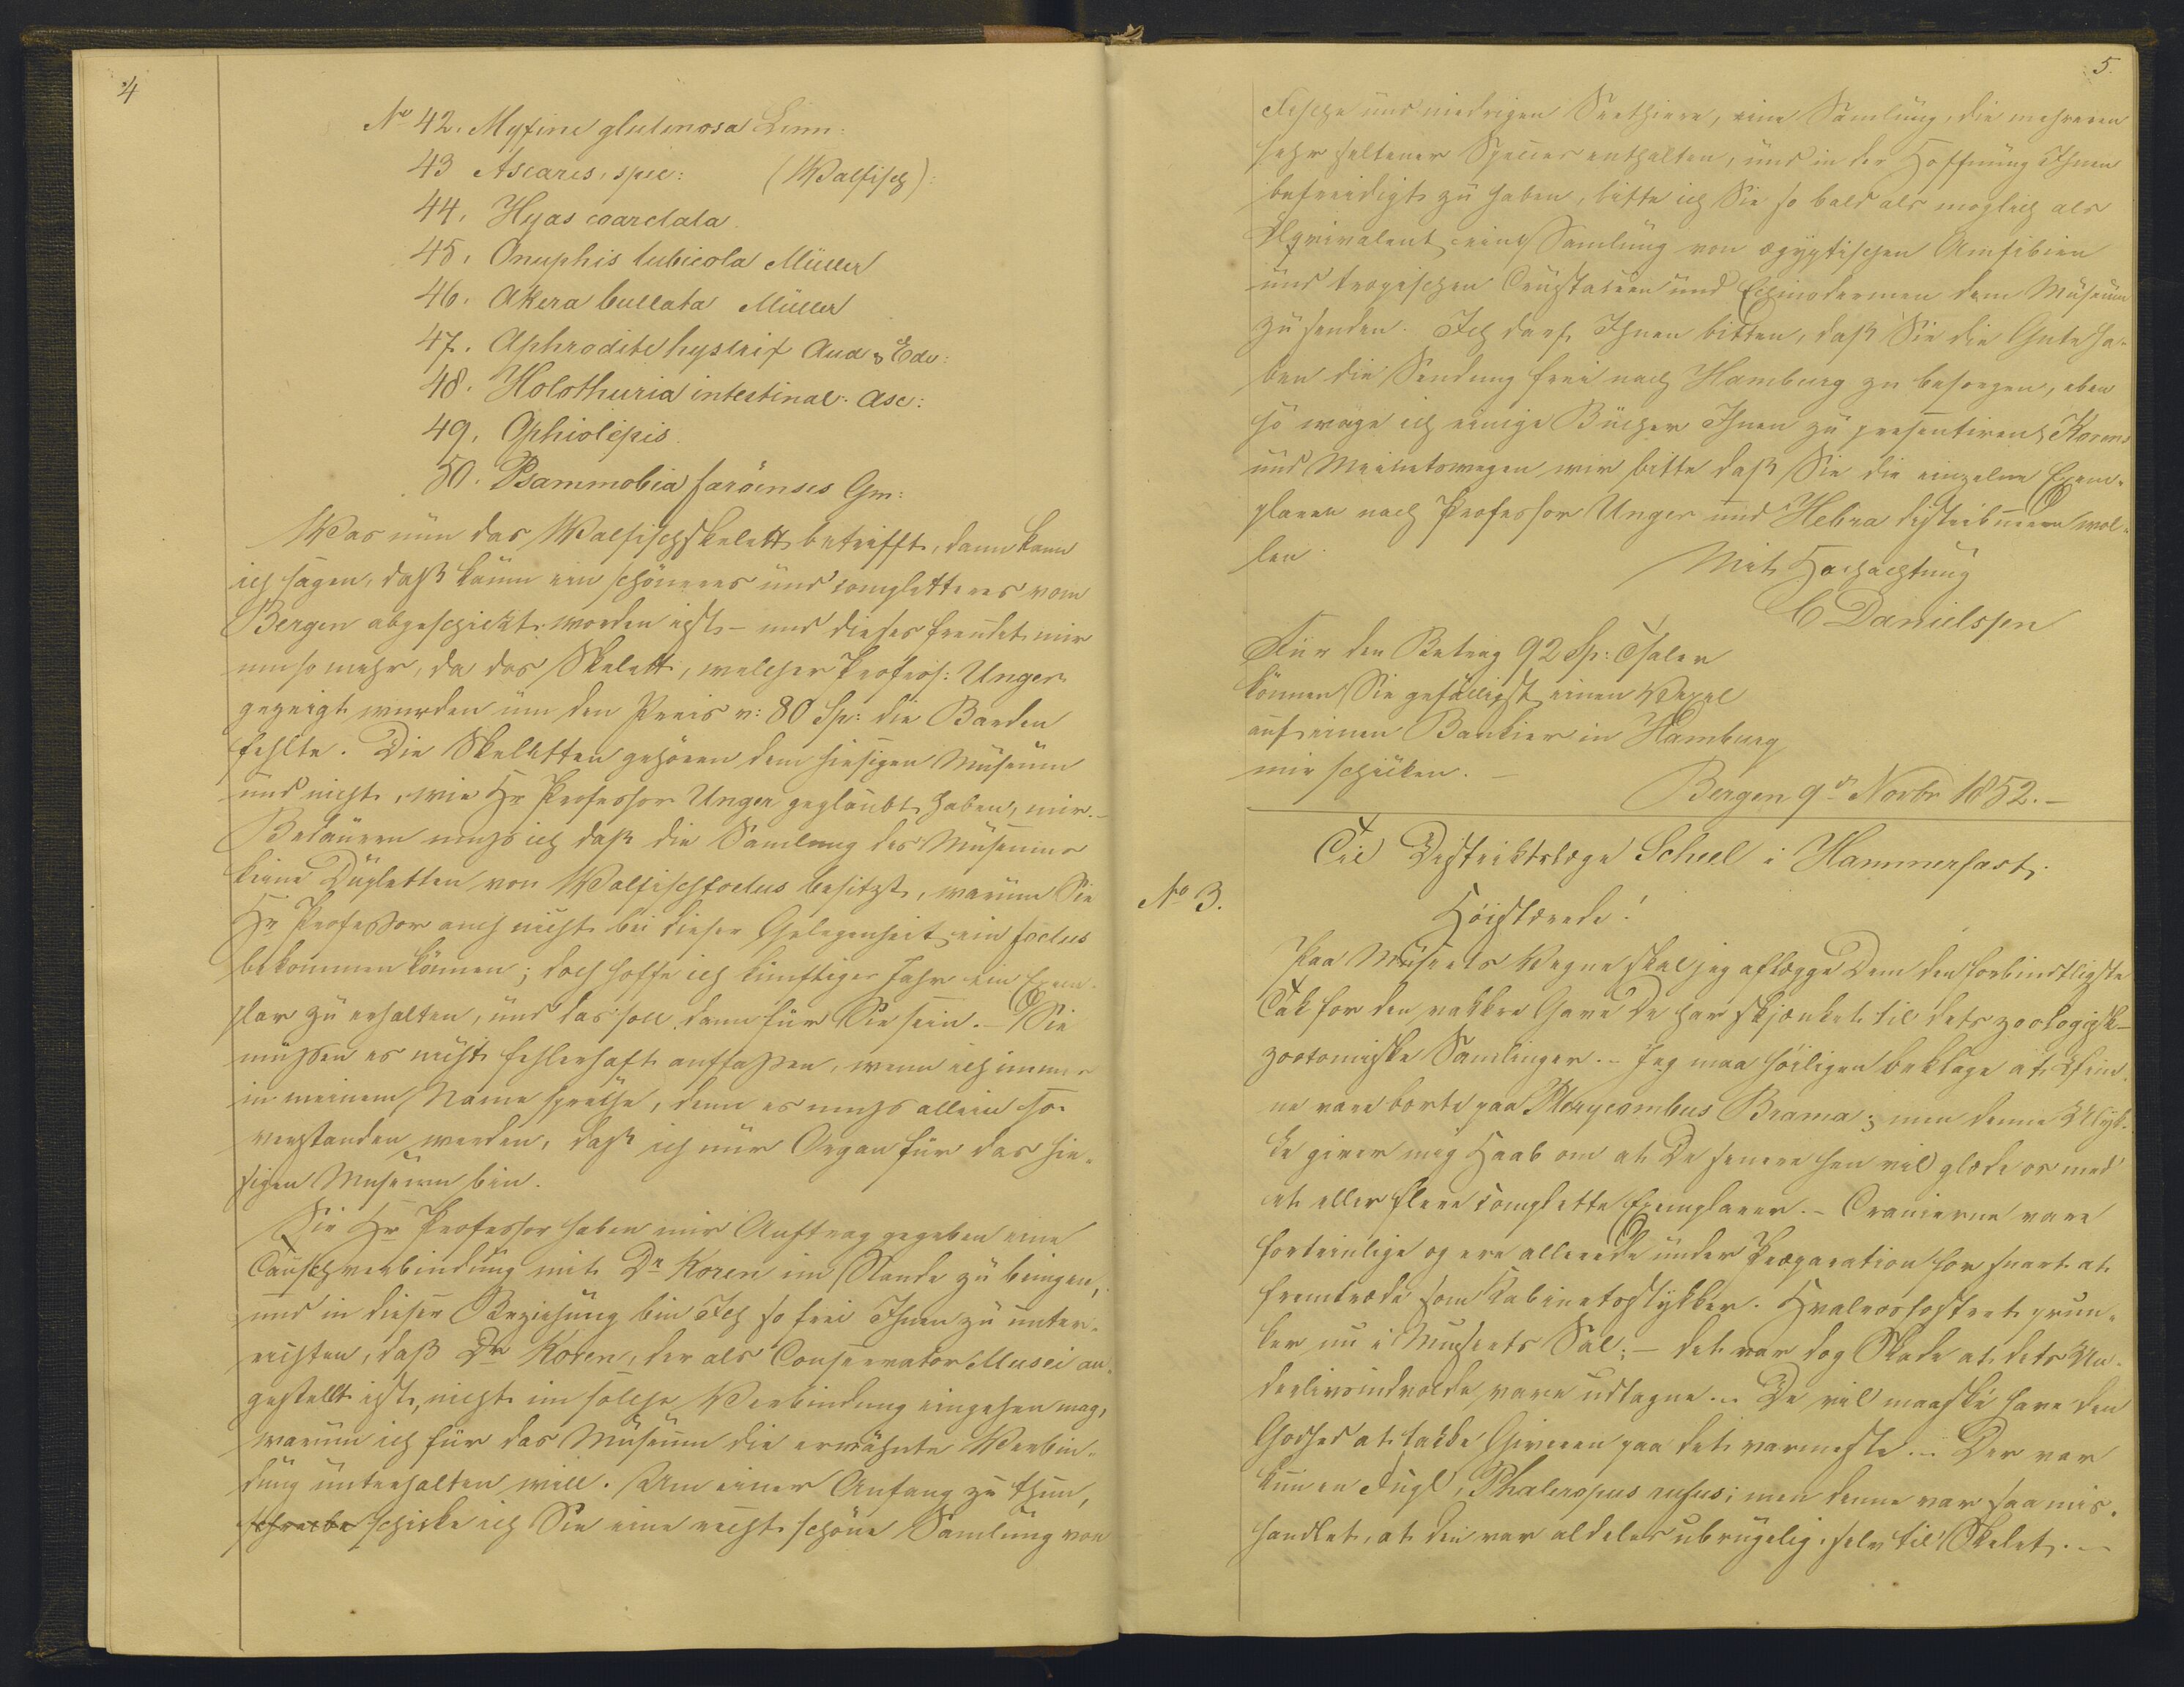 4
No 42. Myxine glutinosa Linn:
43 Ascaris, spec: (Walfisch):
44, Hyas coarctata
45, Onuphis tubicola Müller
46, Akera bullata Müller
47. Aphrodite hystrix Aud & Edw:
48. Holothuria intestinal. Asc:
49, Ophiolepis.
50. Psammobia faröensis Gm:
Was nun das Walfischskelett betrifft, dann kann
ich sagen, daß kaum ein schöneres und completteres vom
Bergen abgeschickt worden ist, – und dieses freudet mir
um so mehr, da das Skelett, welcher Profess: Unger
gezeigt wurden um den Preis v: 80 Sp: die Barden
fehlte. Die Skeletten gehören dem hiesigen Museum
und nicht, wie Hr Professor Unger geglaubt haben, mir. –
Bedauern muß ich daß die Samlung des Museums
keine Dupletten von Walfischfoetus besitzt, warum Sie
Hr Professor auch nicht bei dieser Gelegenheit ein foetus
bekommen können; doch hoffe ich kunftiges Jahr ein Exem-
plar zu erhalten, und das soll dann für Sie sein. – Sie
müssen es nicht fehlerhaft auffassen, wenn ich immer
in meinem Name spreche, denn es muß allein so
verstanden werden, daß ich nur Organ für das hie-
sigen Museum bin.
Sie Hr Professor haben mir Auftrag gegeben eine
Tauschverbindung mit Dr Koren im Stande zu bringen,
und in dieser Beziehung bin Ich so frei Ihnen zu unter-
richten, daß Dr Koren, der als Conservator Musei an-
gestellt ist, nicht im solche Verbindung eingehen mag,
warum ich für das Museum die erwähnte Verbin-
dung unterhalten will. Um einer Anfang zu thun,
schreibe schicke ich Sie eine recht schöne Samlung von
5.
Fische und niedrigen Seethiere, eine Samlung, die mehreren
sehr seltener Species enthalten, und in der Hoffnung Ihnen
befreidigt zu haben, bitte ich Sie so bald als moglich als
Eqvivalent eine Samlung von ægyptischen Amfibien
und tropischen Crustaceen und Echinodermen dem Museum
zu senden. Ich darf Ihnen bitten, daß Sie die Gute ha-
ben die Sendung frei nach Hamburg zu besorgen, eben
so wage ich einige Bücher Ihnen zu presentiren, Korens
und Meinetwegen wir bitte daß Sie die einzelne Exem-
plaren nach Professor Unger und Hebra distribueren wol-
len.
Mit Hochachtung
C Danielssen
Für den Betrag 92 Sp: Thaler
können Sie gefälligst einen Vexel
auf einen Bankier in Hamburg
mir schicken. –
Bergen 9d Novbr 1852. –
Til Distriktslæge Scheel i Hammerfast.
No 3.
Høistærede!
Paa Museets Vegne skal jeg aflægge Dem den forbindtligste
Tak for den vakkre Gave De har skjænket til dets zoologisk-
zootomiske Samlinger. – Jeg maa høiligen beklage at Øin-
ne vare borte paa Pterycombus Brama; men denne Ulyk-
ke giver mig Haab om at De senere hen vil glæde os med
et eller flere complette Exemplarer. – Cranierne vare
fortrinlige og ere allerede under Præparation for snart at
fremtræde som Kabinetsstykker. Hvalrosfostret prun-
ker nu i Museets Sal; – det var dog Skade at dets Un-
derlivsindvolde vare udtagne. – De vil maaske have den
Godhed at takke Giveren paa det varmeste. – Der var
kun en Fugl, Phaleropus rufus; men denne var saa mis-
handlet, at den var aldeles ubrugelig, selv til Skelet. –